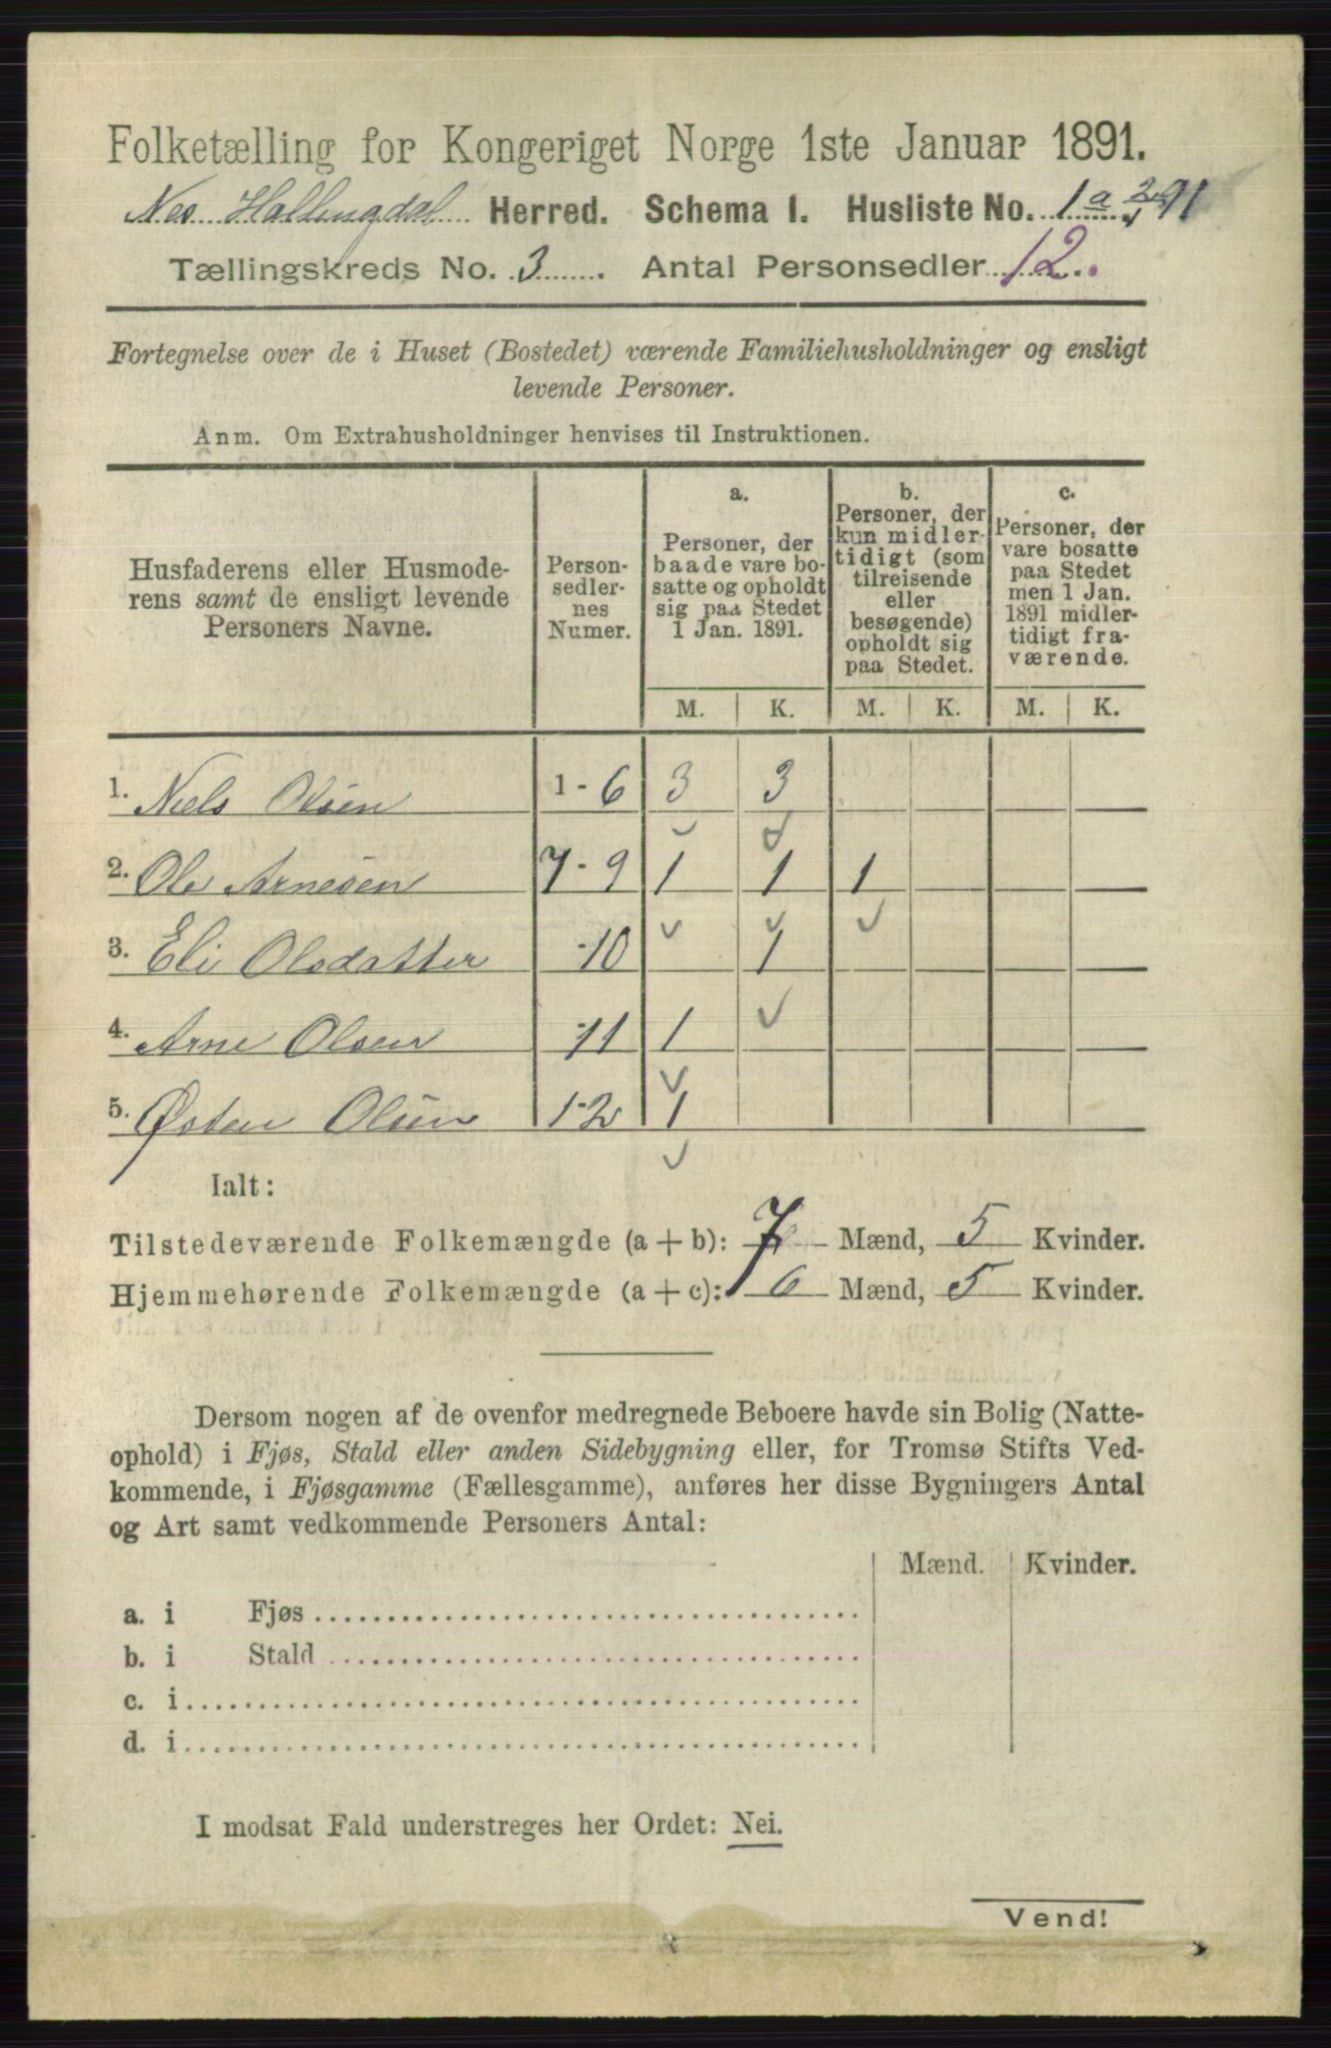 Folketælling for Kongeriget Norge 1ste Januar 1891.
Nes Hallingdal Herred. Schema I. Husliste No. 1a
Tællingskreds No. 3 Antal Personsedler 12.
Fortegnelse over de i Huset (Bostedet) værende Familiehusholdninger og ensligt
levende Personer.
Anm. Om Extrahusholdninger henvises til Instruktionen.
Husfaderens eller Husmode-
rens samt de ensligt levende
Personers Navne.
Person-
sedler-
nes
Numer.
a.
Personer, der
baade vare bo-
satte og opholdt
sig paa Stedet
1 Jan. 1891.
b.
Personer, der
kun midler-
tidigt (som
tilreisende
eller
besøgende)
opholdt sig
paa Stedet.
c.
Personer, der
vare bosatte
paa Stedet
men 1 Jan.
1891 midler-
tidigt fra-
værende.
M. K. M. K. M. K.
1. Niels Olsen 1-6 3 3
2. Ole Arnesen 7-9 1 1 1
3. Eli Olsdatter -10 1
4. Arne Olsen -11 1
5. Østen Olsen 12 1
Ialt:
Tilstedeværende Folkemængde (a + b): 7 Mænd, 5 Kvinder.
Hjemmehørende Folkemængde (a + c): 6 Mænd, 5 Kvinder.
Dersom nogen af de ovenfor medregnede Beboere havde sin Bolig (Natte-
ophold) i Fjøs, Stald eller anden Sidebygning eller, for Tromsø Stifts Ved-
kommende, i Fjøsgamme (Fællesgamme), anføres her disse Bygningers Antal
og Art samt vedkommende Personers Antal:
Mænd. Kvinder.
a. i Fjøs
b. i Stald
c. i
d. i
I modsat Fald understreges her Ordet: Nei.
Vend!